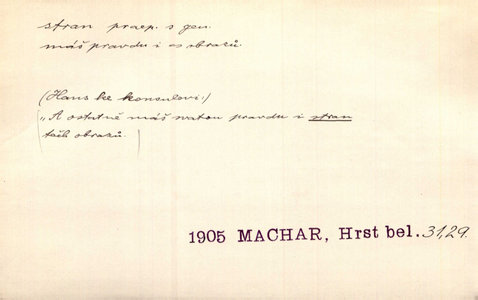 stran praep. s gen.
máš pravdu i s obrazů.
(Hans ke konsulovi:)
„A ostatně máš svatou pravdu i stran
těch obrazů.
1905 MACHAR, Hrst bel. 31,29.